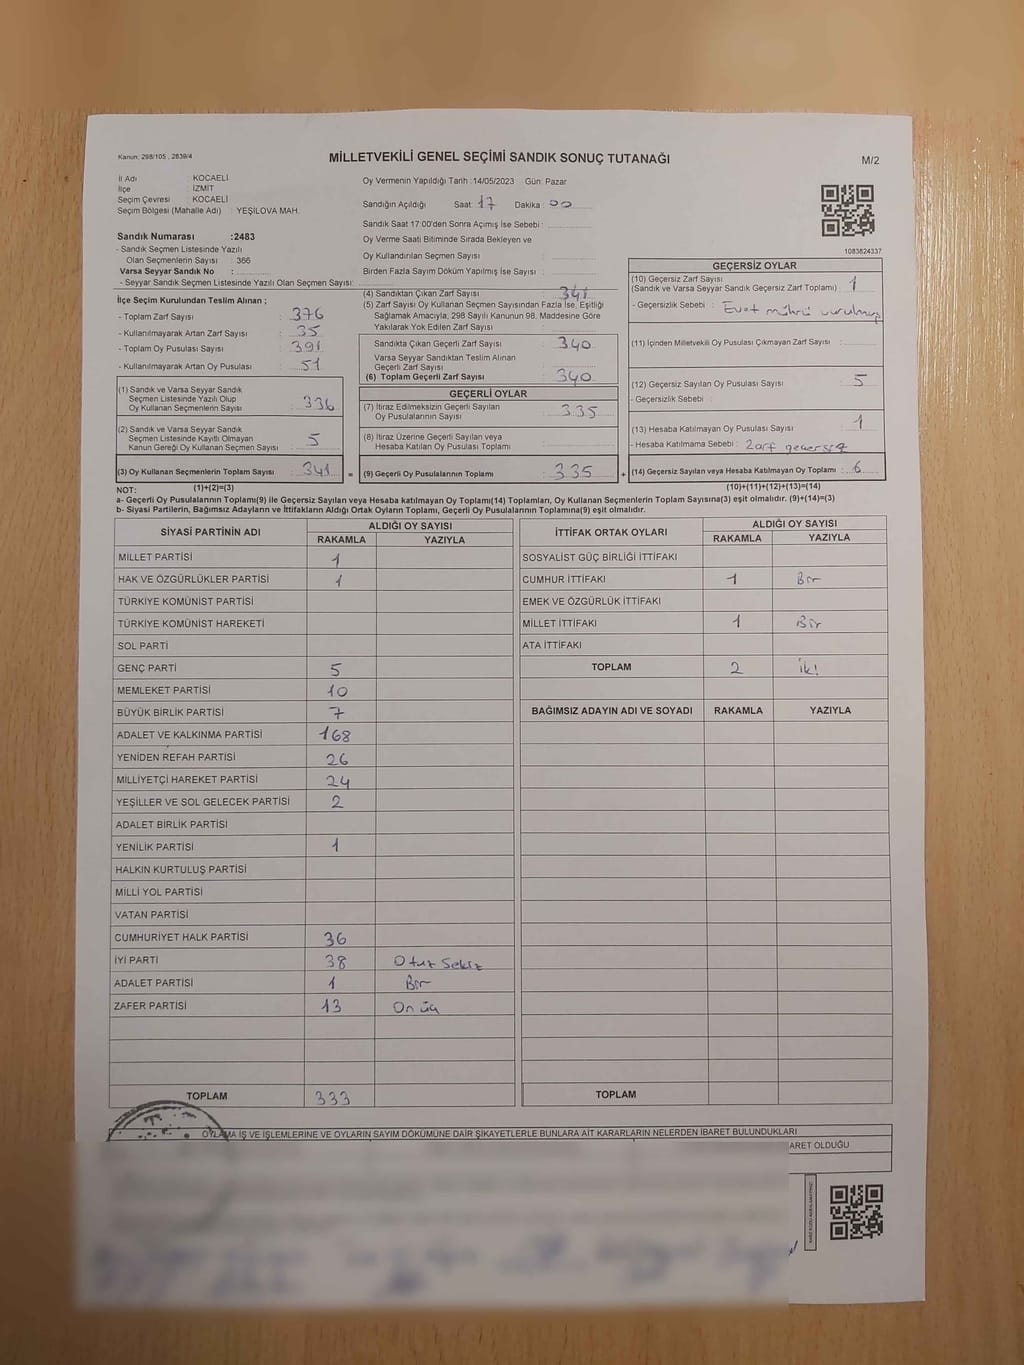 Kanun: 298/105 , 2839/4
MİLLETVEKİLİ GENEL SEÇİMİ SANDIK SONUÇ TUTANAĞI
M/2
İl Adı : KOCAELİ
İlçe : İZMİT
Seçim Çevresi : KOCAELİ
Seçim Bölgesi (Mahalle Adı) : YEŞİLOVA MAH.
Oy Vermenin Yapıldığı Tarih :14/05/2023 Gün: Pazar
Sandığın Açıldığı Saat: 17 Dakika : 00
Sandık Saat 17:00'den Sonra Açımış İse Sebebi :
Oy Verme Saati Bitiminde Sırada Bekleyen ve
Oy Kullandırılan Seçmen Sayısı :
Birden Fazla Sayım Döküm Yapılmış İse Sayısı :
1083824337
Sandık Numarası :2483
- Sandık Seçmen Listesinde Yazılı
Olan Seçmenlerin Sayısı : 366
Varsa Seyyar Sandık No :
- Seyyar Sandık Seçmen Listesinde Yazılı Olan Seçmen Sayısı:
İlçe Seçim Kurulundan Teslim Alınan ;
- Toplam Zarf Sayısı : 376
- Kullanılmayarak Artan Zarf Sayısı : 35
- Toplam Oy Pusulası Sayısı : 391
- Kullanılmayarak Artan Oy Pusulası : 51
(1) Sandık ve Varsa Seyyar Sandık
Seçmen Listesinde Yazılı Olup
Oy Kullanan Seçmenlerin Sayısı : 336
(2) Sandık ve Varsa Seyyar Sandık
Seçmen Listesinde Kayıtlı Olmayan
Kanun Gereği Oy Kullanan Seçmen Sayısı : 5
(3) Oy Kullanan Seçmenlerin Toplam Sayısı : 341 =
(1)+(2)=(3)
(4) Sandıktan Çıkan Zarf Sayısı : 341
(5) Zarf Sayısı Oy Kullanan Seçmen Sayısından Fazla İse, Eşitliği
Sağlamak Amacıyla, 298 Sayılı Kanunun 98. Maddesine Göre
Yakılarak Yok Edilen Zarf Sayısı :
Sandıkta Çıkan Geçerli Zarf Sayısı : 340
Varsa Seyyar Sandıktan Teslim Alınan
Geçerli Zarf Sayısı :
(6) Toplam Geçerli Zarf Sayısı : 340
GEÇERLİ OYLAR
(7) İtiraz Edilmeksizin Geçerli Sayılan
Oy Pusulalarının Sayısı : 335
(8) İtiraz Üzerine Geçerli Sayılan veya
Hesaba Katılan Oy Pusulası Toplamı :
(9) Geçerli Oy Pusulalarının Toplamı : 335 +
GEÇERSİZ OYLAR
(10) Geçersiz Zarf Sayısı
(Sandık ve Varsa Seyyar Sandık Geçersiz Zarf Toplamı) : 1
- Geçersizlik Sebebi : Evet mührü vurulmuş
(11) İçinden Milletvekili Oy Pusulası Çıkmayan Zarf Sayısı :
(12) Geçersiz Sayılan Oy Pusulası Sayısı : 5
- Geçersizlik Sebebi :
(13) Hesaba Katılmayan Oy Pusulası Sayısı : 1
- Hesaba Katılmama Sebebi : Zarf geçersiz
(14) Geçersiz Sayılan veya Hesaba Katılmayan Oy Toplamı : 6
(10)+(11)+(12)+(13)=(14)
NOT:
a- Geçerli Oy Pusulalarının Toplamı(9) ile Geçersiz Sayılan veya Hesaba katılmayan Oy Toplamı(14) Toplamları, Oy Kullanan Seçmenlerin Toplam Sayısına(3) eşit olmalıdır. (9)+(14)=(3)
b- Siyasi Partilerin, Bağımsız Adayların ve İttifakların Aldığı Ortak Oyların Toplamı, Geçerli Oy Pusulalarının Toplamına(9) eşit olmalıdır.
SİYASİ PARTİNİN ADI ALDIĞI OY SAYISI
RAKAMLA YAZIYLA
MİLLET PARTİSİ 1
HAK VE ÖZGÜRLÜKLER PARTİSİ 1
TÜRKİYE KOMÜNİST PARTİSİ
TÜRKİYE KOMÜNİST HAREKETİ
SOL PARTİ
GENÇ PARTİ 5
MEMLEKET PARTİSİ 10
BÜYÜK BİRLİK PARTİSİ 7
ADALET VE KALKINMA PARTİSİ 168
YENİDEN REFAH PARTİSİ 26
MİLLİYETÇİ HAREKET PARTİSİ 24
YEŞİLLER VE SOL GELECEK PARTİSİ 2
ADALET BİRLİK PARTİSİ
YENİLİK PARTİSİ 1
HALKIN KURTULUŞ PARTİSİ
MİLLİ YOL PARTİSİ
VATAN PARTİSİ
CUMHURİYET HALK PARTİSİ 36
İYİ PARTİ 38 Otuz Sekiz
ADALET PARTİSİ 1 Bir
ZAFER PARTİSİ 13 On üç
TOPLAM 333
İTTİFAK ORTAK OYLARI ALDIĞI OY SAYISI
RAKAMLA YAZIYLA
SOSYALİST GÜÇ BİRLİĞİ İTTİFAKI
CUMHUR İTTİFAKI 1 Bir
EMEK VE ÖZGÜRLÜK İTTİFAKI
MİLLET İTTİFAKI 1 Bir
ATA İTTİFAKI
TOPLAM 2 İki
BAĞIMSIZ ADAYIN ADI VE SOYADI RAKAMLA YAZIYLA
TOPLAM
OYLAMA İŞ VE İŞLEMLERİNE VE OYLARIN SAYIM DÖKÜMÜNE DAİR ŞİKAYETLERLE BUNLARA AİT KARARLARIN NELERDEN İBARET BULUNDUKLARI
ARET OLDUĞU